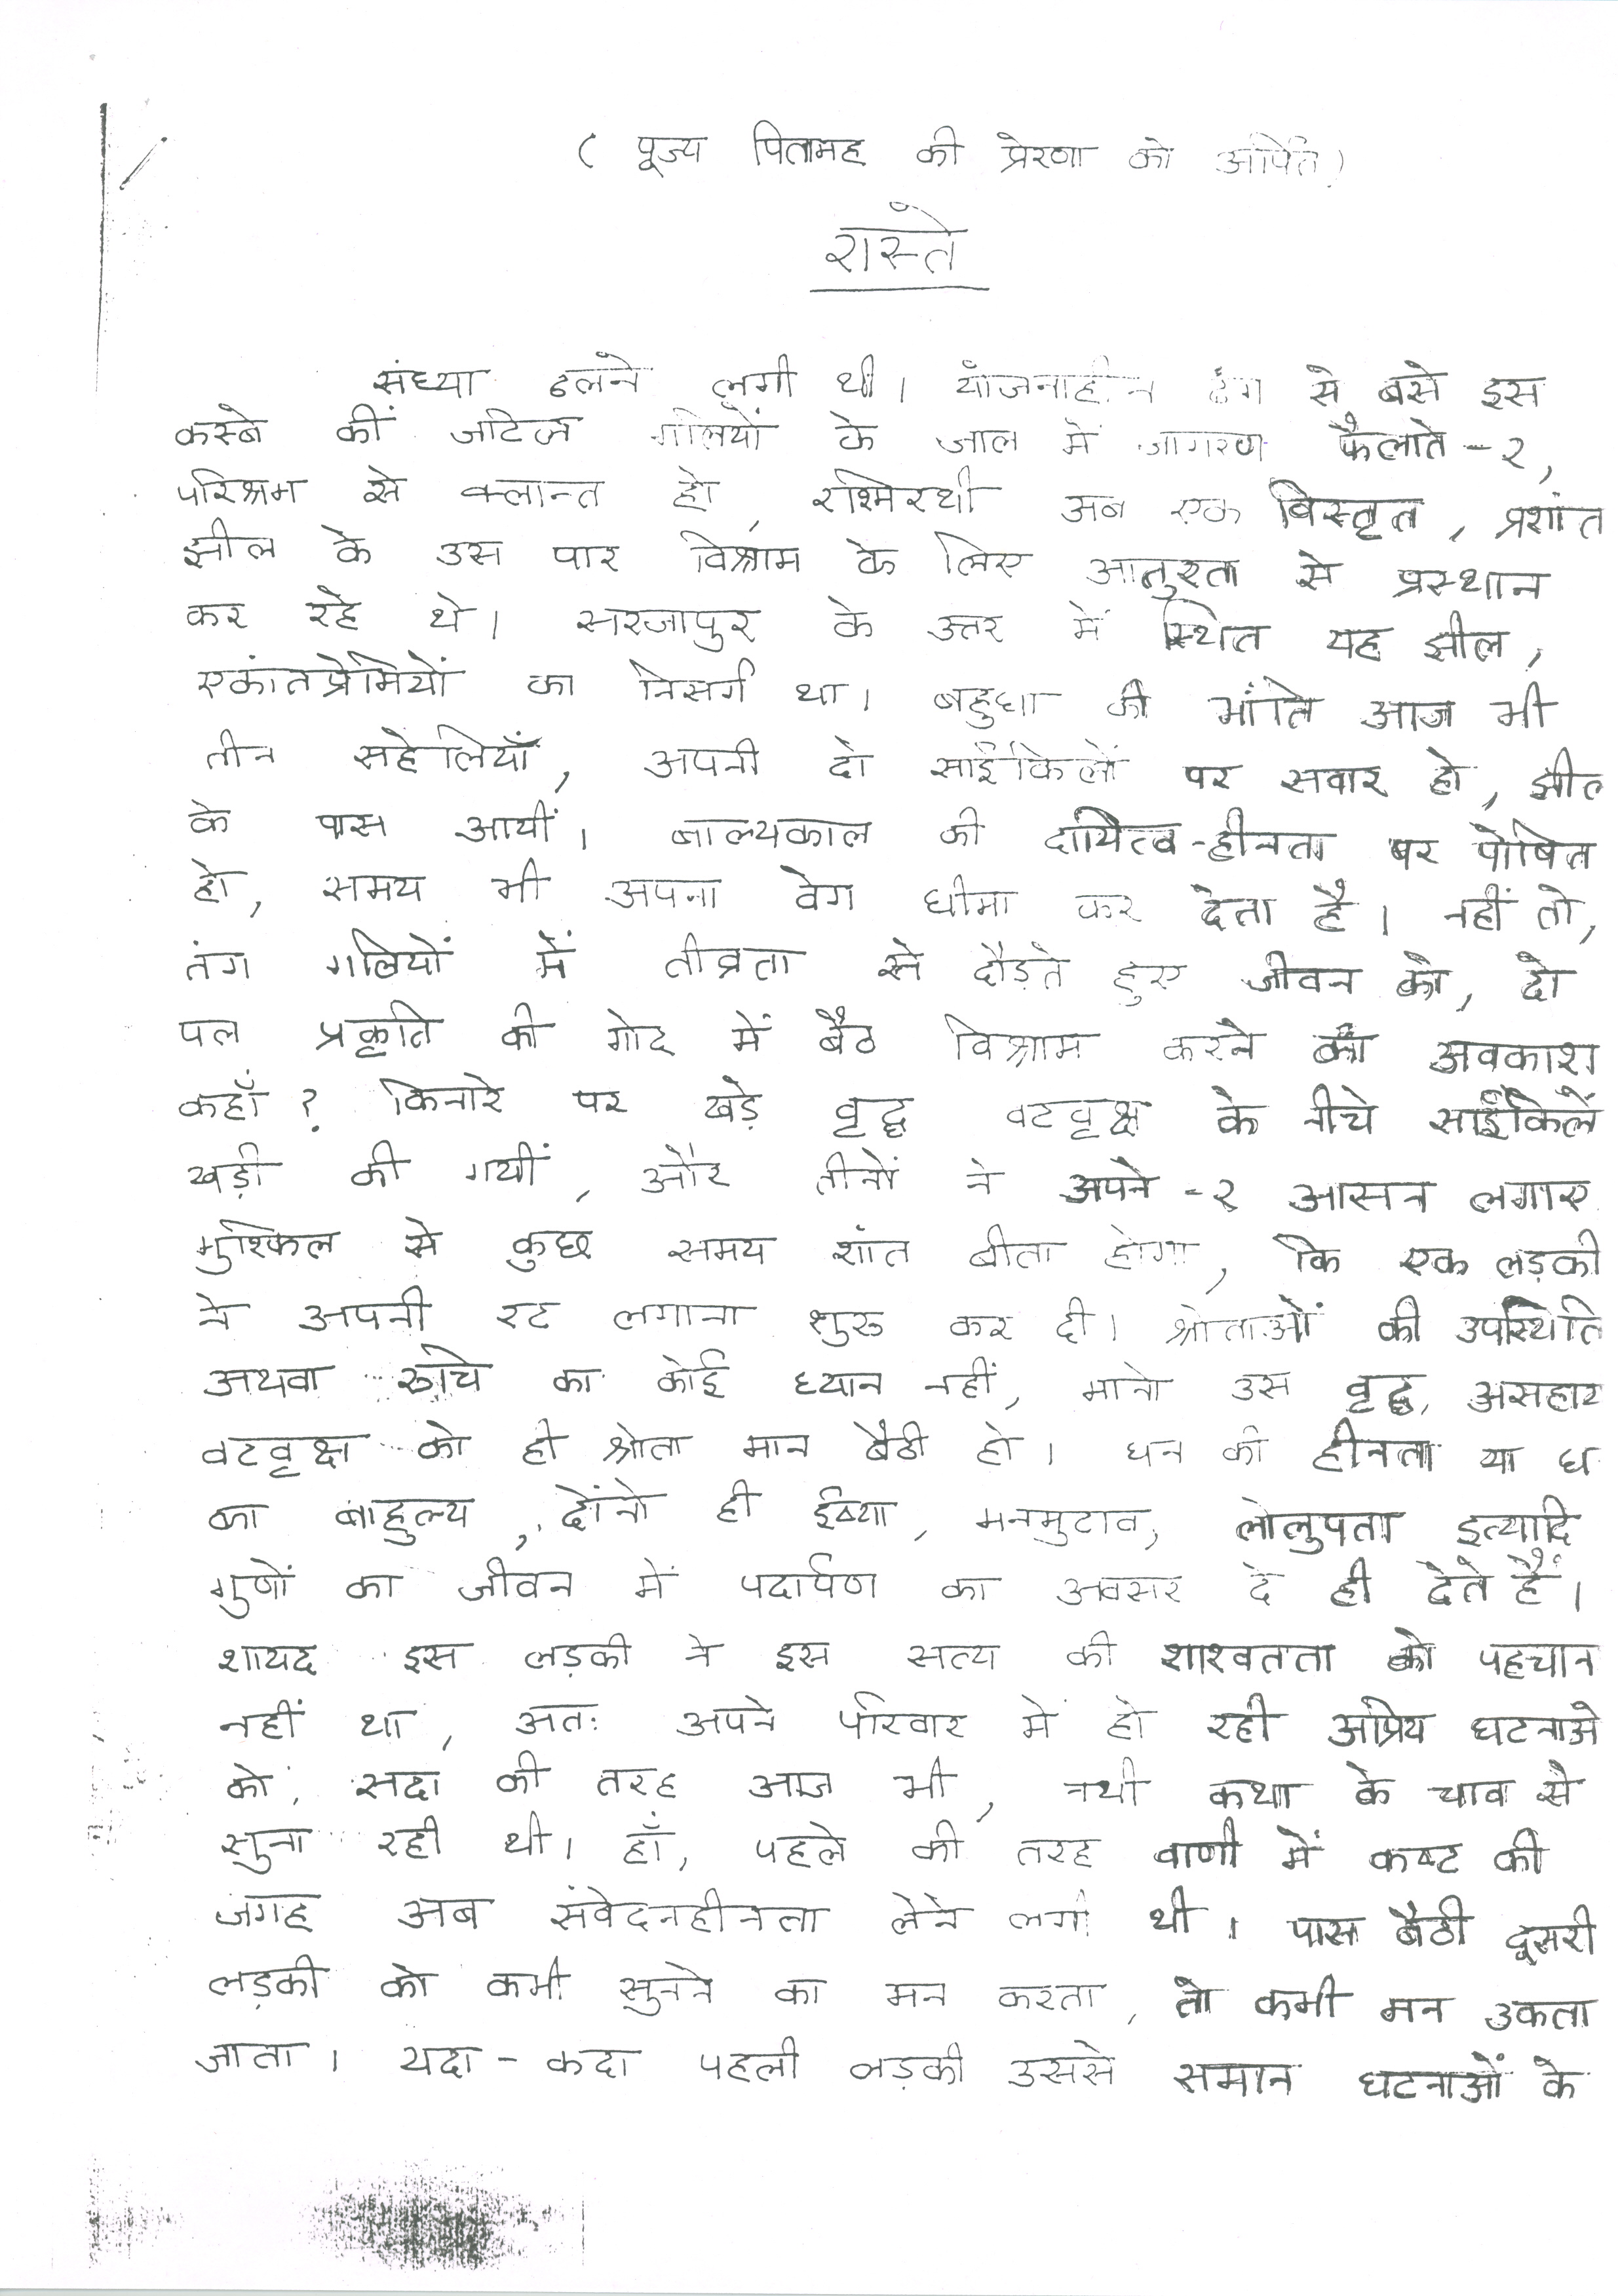 ( पूज्य पितामह की प्रेरणा को अर्पित)
रास्ते
संध्या ढलने लगी थी। योजनाहीन ढंग से बसे इस
कस्बे कीं जटिल गलियों के जाल में जागरण फैलाते-२,
परिश्रम से क्लान्त हो, रश्मिरथी अब एक विस्तृत, प्रशांत
झील के उस पार विश्राम के लिए आतुरता से प्रस्थान
कर रहे थे। सरजापुर के उत्तर में स्थित यह झील,
एकांतप्रेमियों का निसर्ग था। बहुधा की भांति आज भी
तीन सहेलियाँ, अपनी दो साईकिलों पर सवार हो, झील
के पास आयीं। बाल्यकाल की दायित्व-हीनता पर पोषित
हो, समय भी अपना वेग धीमा कर देता है। नहीं तो,
तंग गलियों में तीव्रता से दौड़ते हुए जीवन को, दो
पल प्रकृति की गोद में बैठ विश्राम करने का अवकाश
कहाँ? किनारे पर खड़े वृद्ध वटवृक्ष के नीचे साईकिलें
खड़ी की गयीं, और तीनों ने अपने-२ आसन लगाए
मुश्किल से कुछ समय शांत बीता होगा, कि एक लड़की
ने अपनी रट लगाना शुरू कर दी। श्रोताओं की उपस्थिति
अथवा रूचि का कोई ध्यान नहीं, मानो उस वृद्ध, असहाय
वटवृक्ष को ही श्रोता मान बैठी हो। धन की हीनता या ध
का बाहुल्य, दोंनो ही ईर्ष्या, मनमुटाव, लोलुपता इत्यादि
गुणों का जीवन में पदार्पण का अवसर दे ही देते हैं।
शायद इस लड़की ने इस सत्य की शाश्वतता को पहचान
नहीं था, अतः अपने परिवार में हो रही अप्रिय घटनाओ
को, सदा की तरह आज भी, नयी कथा के चाव से
सुना रही थी। हाँ, पहले की तरह वाणी में कष्ट की
जगह अब संवेदनहीनता लेने लगी थी। पास बैठी दूसरी
लड़की को कभी सुनने का मन करता, तो कभी मन उकता
जाता। यदा-कदा पहली लड़की उससे समान घटनाओं के